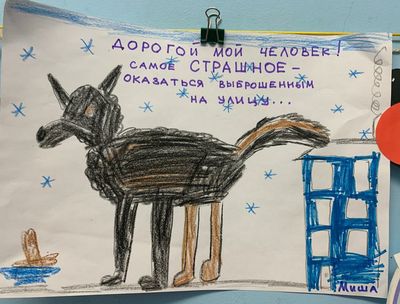 ДОРОГОЙ МОЙ ЧЕЛОВЕК!
САМОЕ СТРАШНОЕ –
ОКАЗАТЬСЯ ВЫБРОШЕННЫМ
НА УЛИЦУ...
МИША